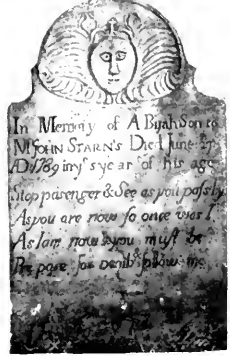 In Memory of ABijah Son to
Mr JOHN STARN'S Died June 27
AD 1789 in ys year of his age
Stop pasenger & See as you pass by
As you are now so once was I
As I am now you must be
Prepare for Death & follow me